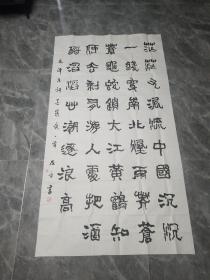 茫茫九派流中國沉沉
一綫穿南北煙雨莽蒼
蒼龜蛇鎖大江黃鶴知
何去剩有游人處把酒
酹滔滔心潮逐浪高
毛澤東詞菩薩蠻
書